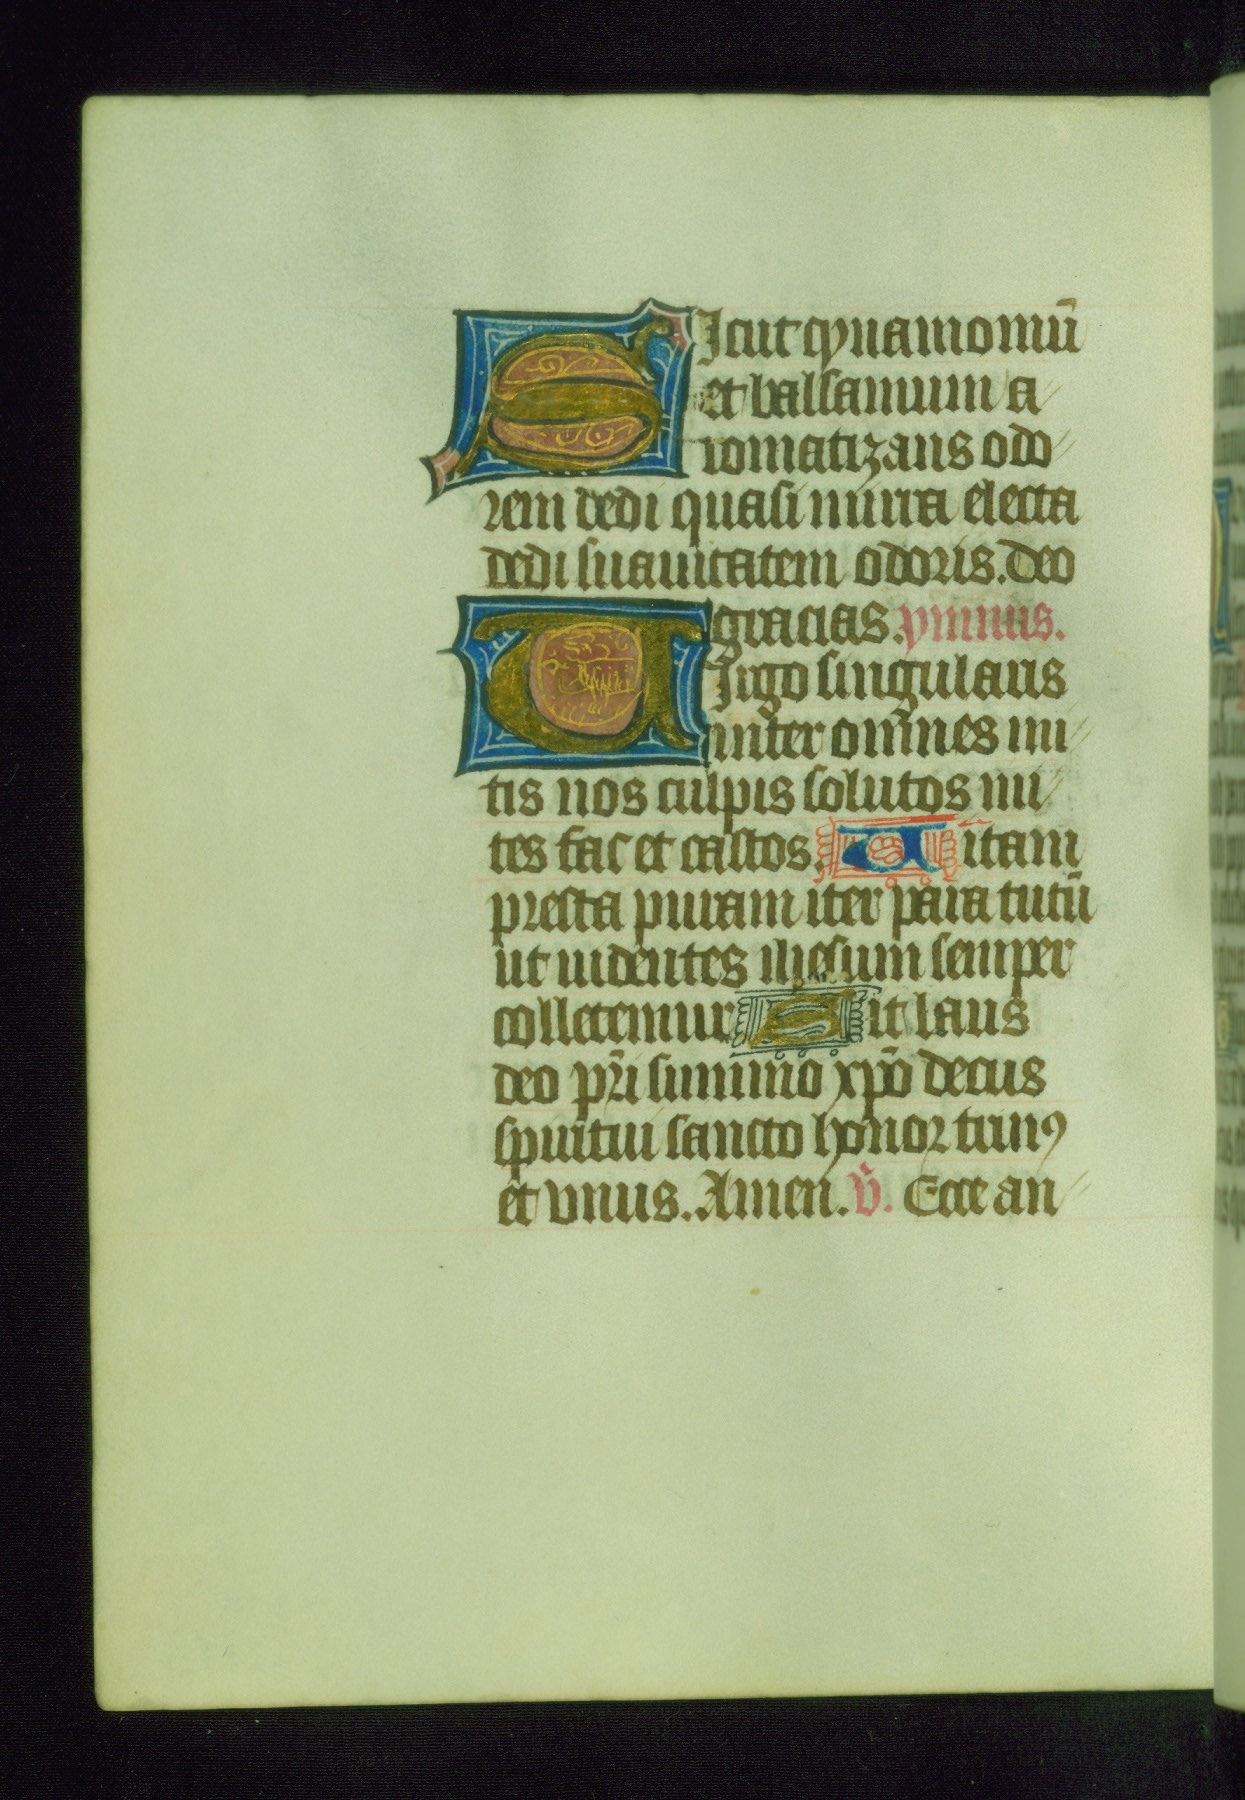 Sicut cynamomū
et balsamum a
romatizans odo
rem dedi quasi mirra electa
dedi suauitatem odoris. Deo
gracias. ymnus.
Uirgo singularis
inter om̄nes mi
tis nos culpis solutos mi
tes fac et castos. Uitam
presta puram iter para tutū
ut uidentes ihesum semper
colletemur Sit laus
deo pr̄i summo xp̄o decus
spiritui sancto honor trinꝯ
et vnus. Amen. v̄. Ecce an